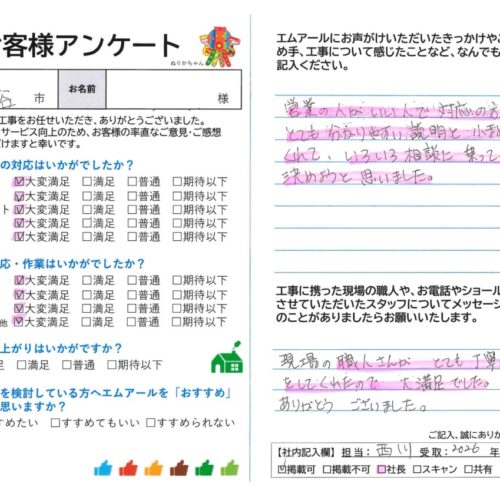 お客様アンケート
ぬりかちゃん
谷 市
お名前
様
工事をお任せいただき、ありがとうございました。
サービス向上のため、お客様の率直なご意見・ご感想
だけますと幸いです。
の対応はいかがでしたか？
☑大変満足 □満足 □普通 □期待以下
☑大変満足 □満足 □普通 □期待以下
ト ☑大変満足 □満足 □普通 □期待以下
☑大変満足 □満足 □普通 □期待以下
☑大変満足 □満足 □普通 □期待以下
応・作業はいかがでしたか？
☑大変満足 □満足 □普通 □期待以下
☑大変満足 □満足 □普通 □期待以下
☑大変満足 □満足 □普通 □期待以下
他 ☑大変満足 □満足 □普通 □期待以下
上がりはいかがですか？
足 □満足 □普通 □期待以下
を検討している方へエムアールを「おすすめ」
思いますか？
すめたい □すすめてもいい □すすめられない
エムアールにお声がけいただいたきっかけや
め手、工事について感じたことなど、なんでも
記入ください。
営業の人がいい人で対応の
とても分かりやすい説明と
くれて、いろいろ相談に乗って
決めようと思いました。
工事に携った現場の職人や、お電話やショール
させていただいたスタッフについてメッセー
のことがありましたらお願いいたします。
現場の職人さんが とても丁寧
をしてくれたので 大満足でした。
ありがとう ございました。
ご記入、誠にありが
【社内記入欄】 担当：西川 受取：2026 年
☑掲載可 □掲載不可 □社長 □スキャン □共有